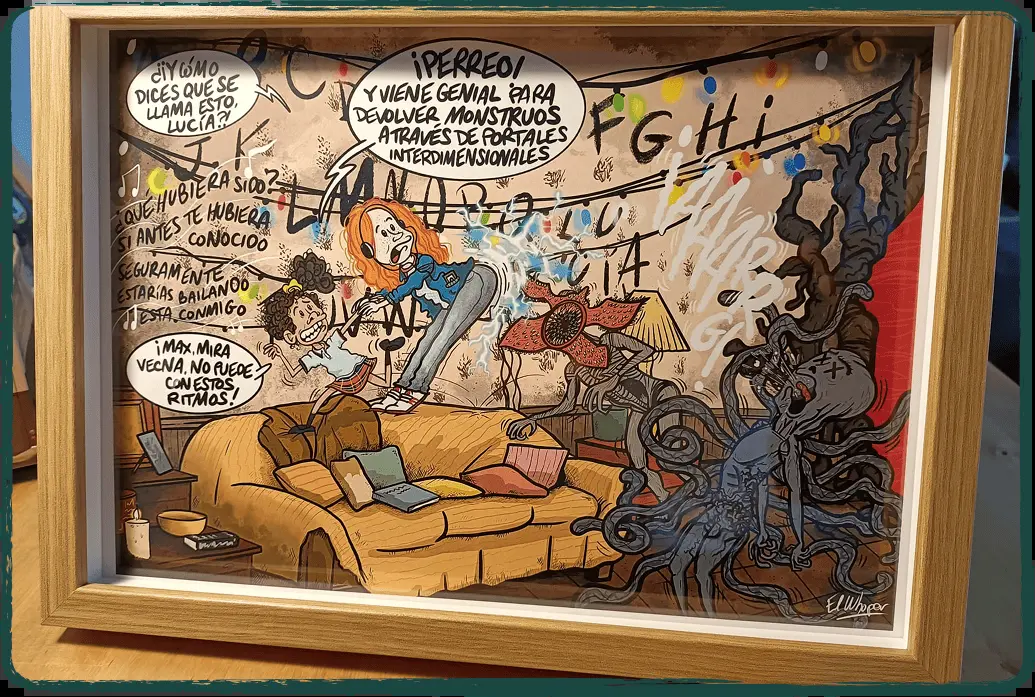 ¿¡Y CÓMO
DICES QUE SE
LLAMA ESTO,
LUCÍA?!
¡PERREO!
Y VIENE GENIAL PARA
DEVOLVER MONSTRUOS
A TRAVÉS DE PORTALES
INTERDIMENSIONALES
F G H i
J K
L M N O P Q
¿QUÉ HUBIERA SIDO?
SI ANTES TE HUBIERA
CONOCIDO
SEGURAMENTE
ESTARÍAS BAILANDO
ESTA CONMIGO
¡MAX, MIRA
VECNA, NO PUEDE
CON ESTOS
RITMOS!
El Whoper